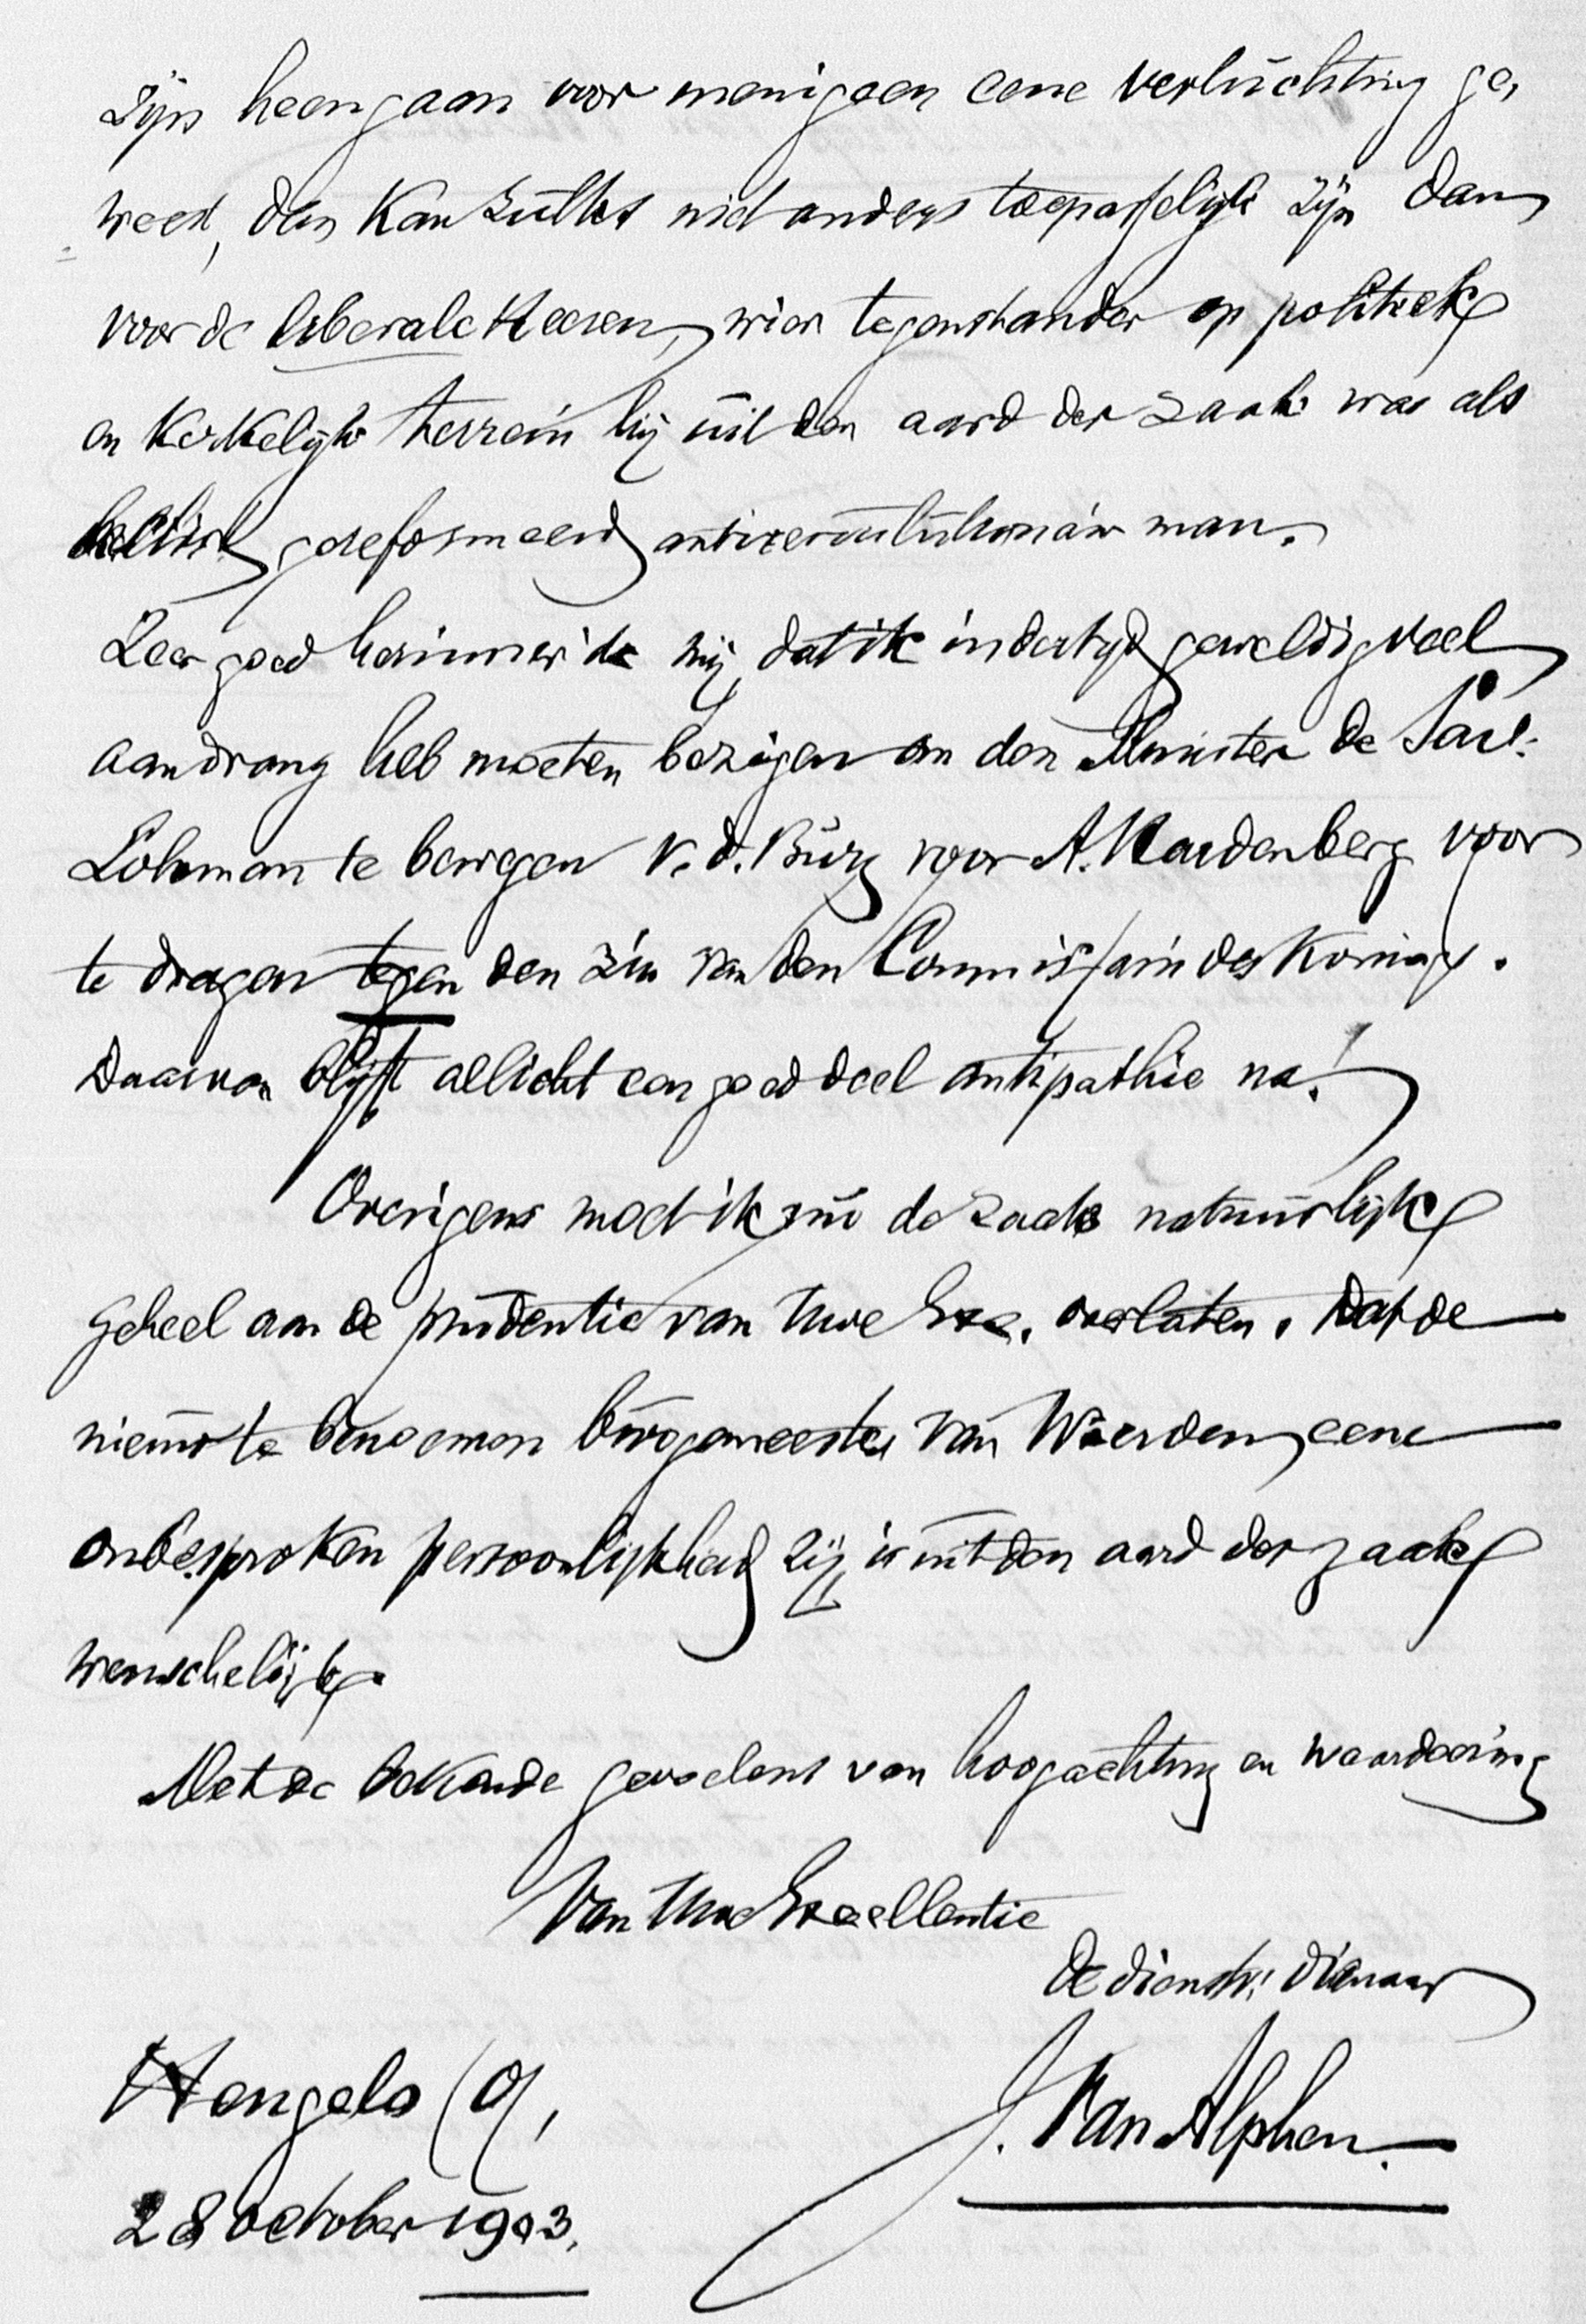 zijn heengaan voor menigeen eene verluchting ge-
weest, dan kan zulks niet anders toepasselijk zijn dan
voor de liberale Heeren, wier tegenstander op politiek
en kerkelijk terrein hij uit den aard der zaak was als
gereformeerd antirevolutionair man.
Zeer goed herinner ik mij, dat ik indertijd geweldig veel
aandrang heb moeten bezigen om den Minister de Sav.
Lohman te bewegen v. d. Burg voor A. Hardenberg voor
te dragen tegen den zin van den Commissaris des Konings.
Daarvan blijft allicht een goed deel antipathie na!
Overigens moet ik nu de zaak natuurlijk
geheel aan de prudentie van Uwe Exc. overlaten. Dat de
nieuw te benoemen burgemeester van Woerden eene
onbesproken persoonlijkheid zij, is uit den aard der zaak
wenschelijk.
Met de bekende gevoelens van hoogachting en waardeering
Van Uwe Excellentie
de dienstv. dienaar
J. Van Alphen.
Hengelo (O),
28 October 1903.